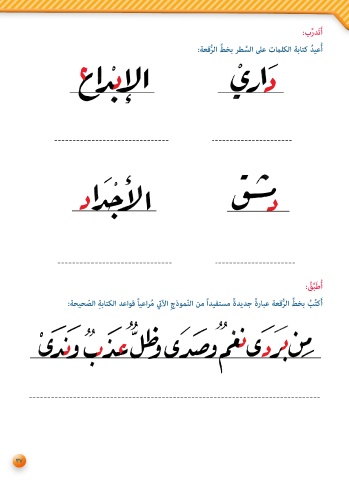 أتدرّب:
أُعيدُ كتابةَ الكلماتِ على السَّطرِ بخطِّ الرُّقعة:
دَاريْ الإبْداع
دمشق الأجْدَاد
أُطبّقُ:
أكتُبُ بخطِّ الرُّقعة عبارةً جديدةً مستفيداً من النّموذجِ الآتي مُراعياً قواعدَ الكتابةِ الصّحيحة:
مِن بَرَدَى نغمٌ وصدَى وظلٌّ عَذبٌ وَندَىْ
٣٧